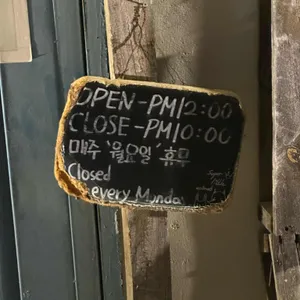 OPEN-PM12:00
CLOSE-PM10:00
매주 '월요일' 휴무
Closed
every Monday